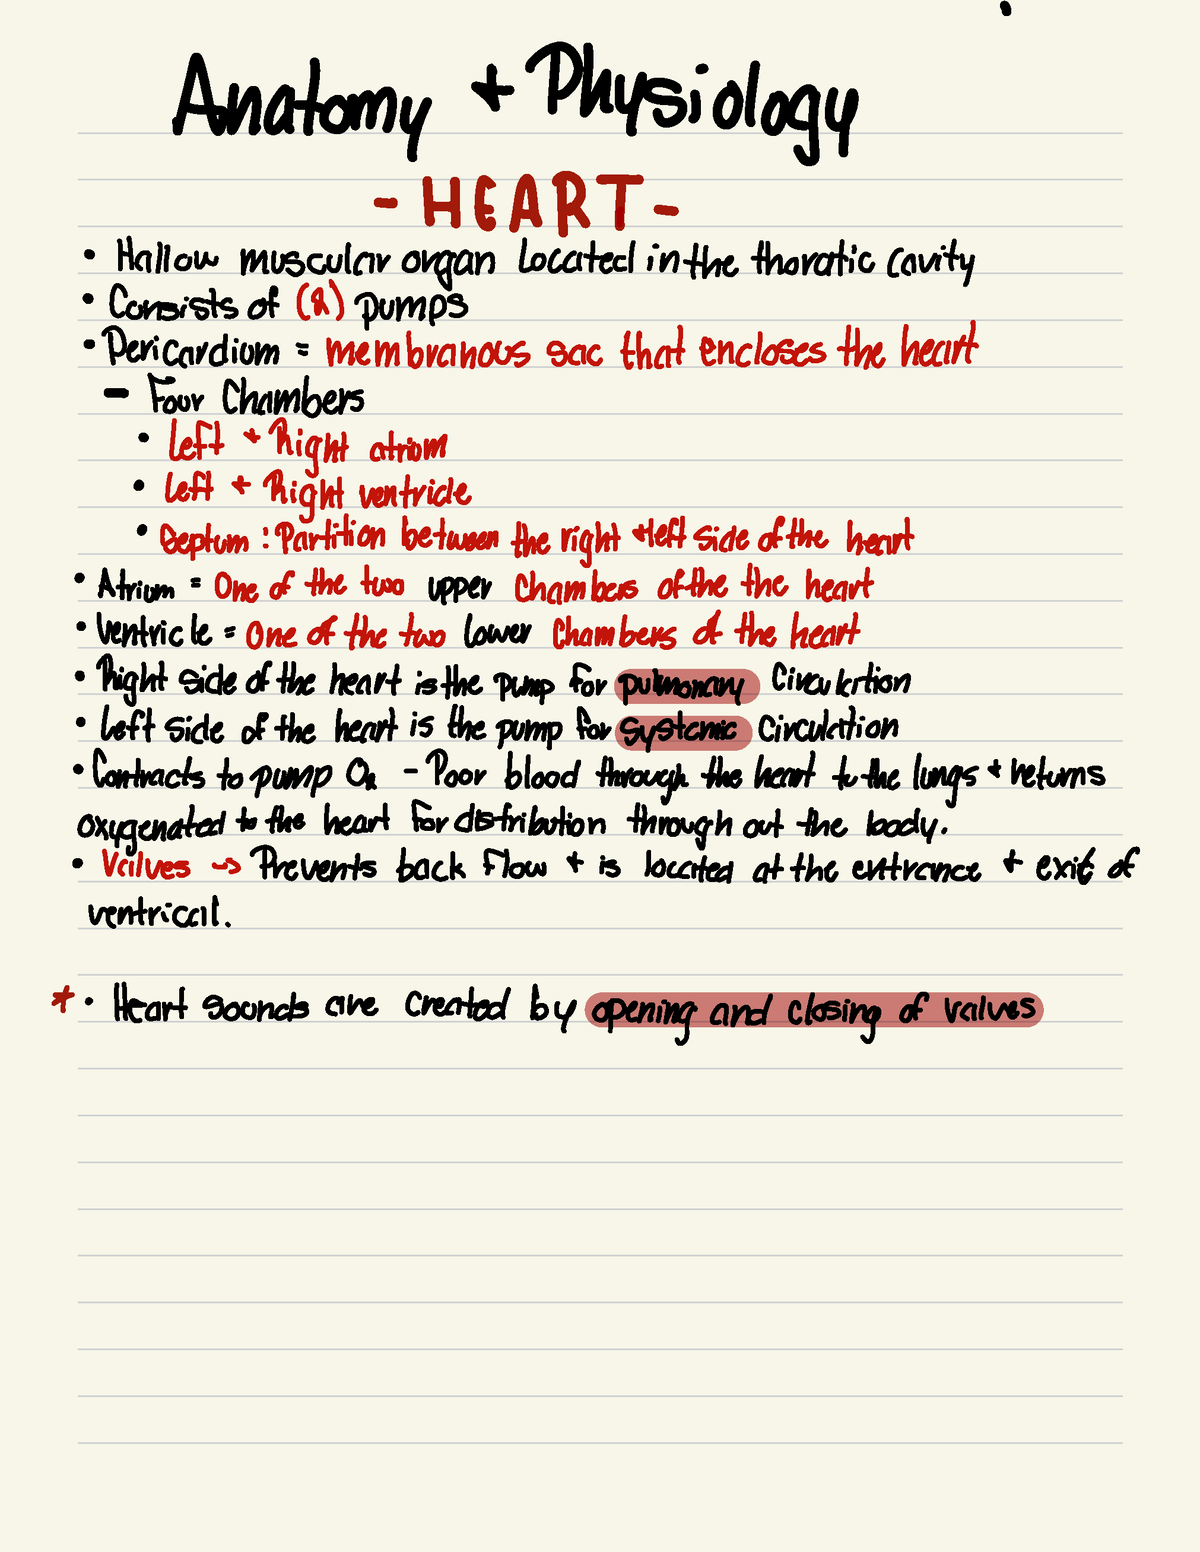 Anatomy + Physiology
- HEART -
• Hallow muscular organ located in the thoratic cavity
• Consists of (2) pumps
• Pericardium = membranous sac that encloses the heart
- Four Chambers
• Left + Right atriom
• Left + Right ventricle
• Septum : Partition between the right + left side of the heart
• Atrium = One of the two upper Chambers of the the heart
• Ventricle = One of the two lower Chambers of the heart
• Right side of the heart is the pump for pulmonary Circulation
• Left side of the heart is the pump for Systemic Circulation
• Contracts to pump O2 - Poor blood through the heart to the lungs + returns
oxygenated to the heart for distribution through out the body.
• Valves → Prevents back flow + is located at the entrance + exit of
ventrical.
* • Heart sounds are created by opening and closing of valves